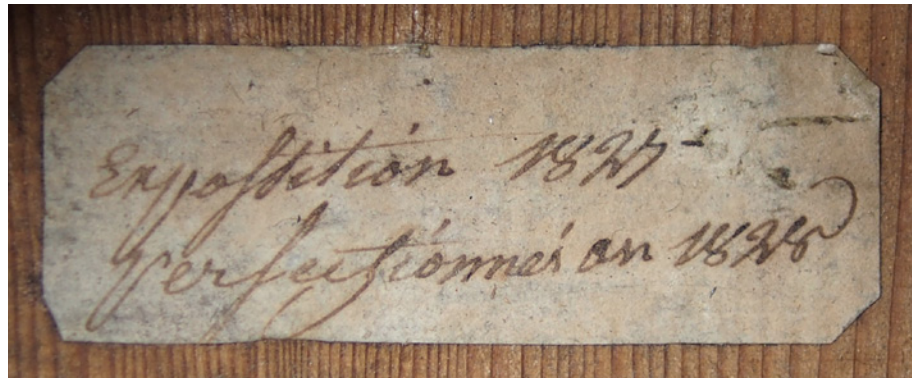 Expostition 1827
perfectionnés an 1828